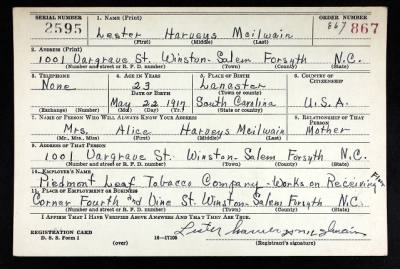 SERIAL NUMBER 1. NAME (Print) ORDER NUMBER
2595 Lester Harveys McIlwain 867 867
(First) (Middle) (Last)
2. ADDRESS (Print)
1001 Vargrave St. Winston-Salem Forsyth N.C.
(Number and street or R. F. D. number) (Town) (County) (State)
3. TELEPHONE 4. AGE IN YEARS 5. PLACE OF BIRTH 6. COUNTRY OF CITIZENSHIP
None 23 Lancaster
DATE OF BIRTH (Town or county)
May 22 1917 South Carolina U.S.A.
(Exchange) (Number) (Mo.) (Day) (Yr.) (State or country)
7. NAME OF PERSON WHO WILL ALWAYS KNOW YOUR ADDRESS 8. RELATIONSHIP OF THAT PERSON
Mrs. Alice Harveys McIlwain Mother
(Mr., Mrs., Miss) (First) (Middle) (Last)
9. ADDRESS OF THAT PERSON
1001 Vargrave St. Winston-Salem Forsyth N.C.
(Number and street or R. F. D. number) (Town) (County) (State)
10. EMPLOYER'S NAME
Piedmont Leaf Tobacco Company - Works on Receiving Floor
11. PLACE OF EMPLOYMENT OR BUSINESS
Corner Fourth and Vine St. Winston-Salem Forsyth N.C.
(Number and street or R. F. D. number) (Town) (County) (State)
I AFFIRM THAT I HAVE VERIFIED ABOVE ANSWERS AND THAT THEY ARE TRUE.
REGISTRATION CARD Lester Harveys McIlwain
D. S. S. Form 1 (over) 16-17105 (Registrant's signature)